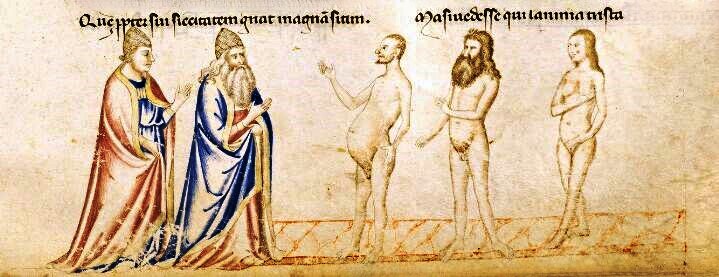 Que ppter sui siccitatem gnat magnã sitim.
Masiuedesse qui lanima trista